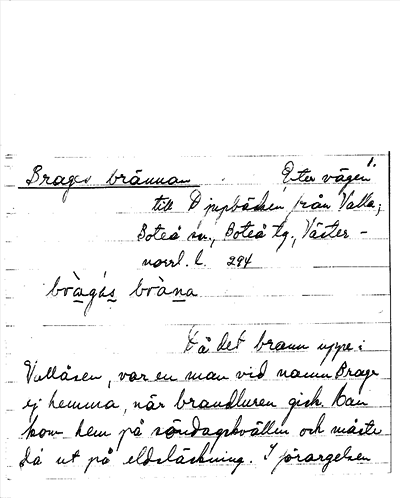 1.
Brages brännan. Efter vägen
till Djupbäcken från Valla,
Boteå sn., Boteå tg., Väster-
norrl. l. 294
bràgas bràna
Då det brann uppe i
Vallåsen, var en man vid namn Brage
ej hemma, när brandluren gick. Han
kom hem på söndagskvällen och måste
då ut på eldsläckning. I förargelsen